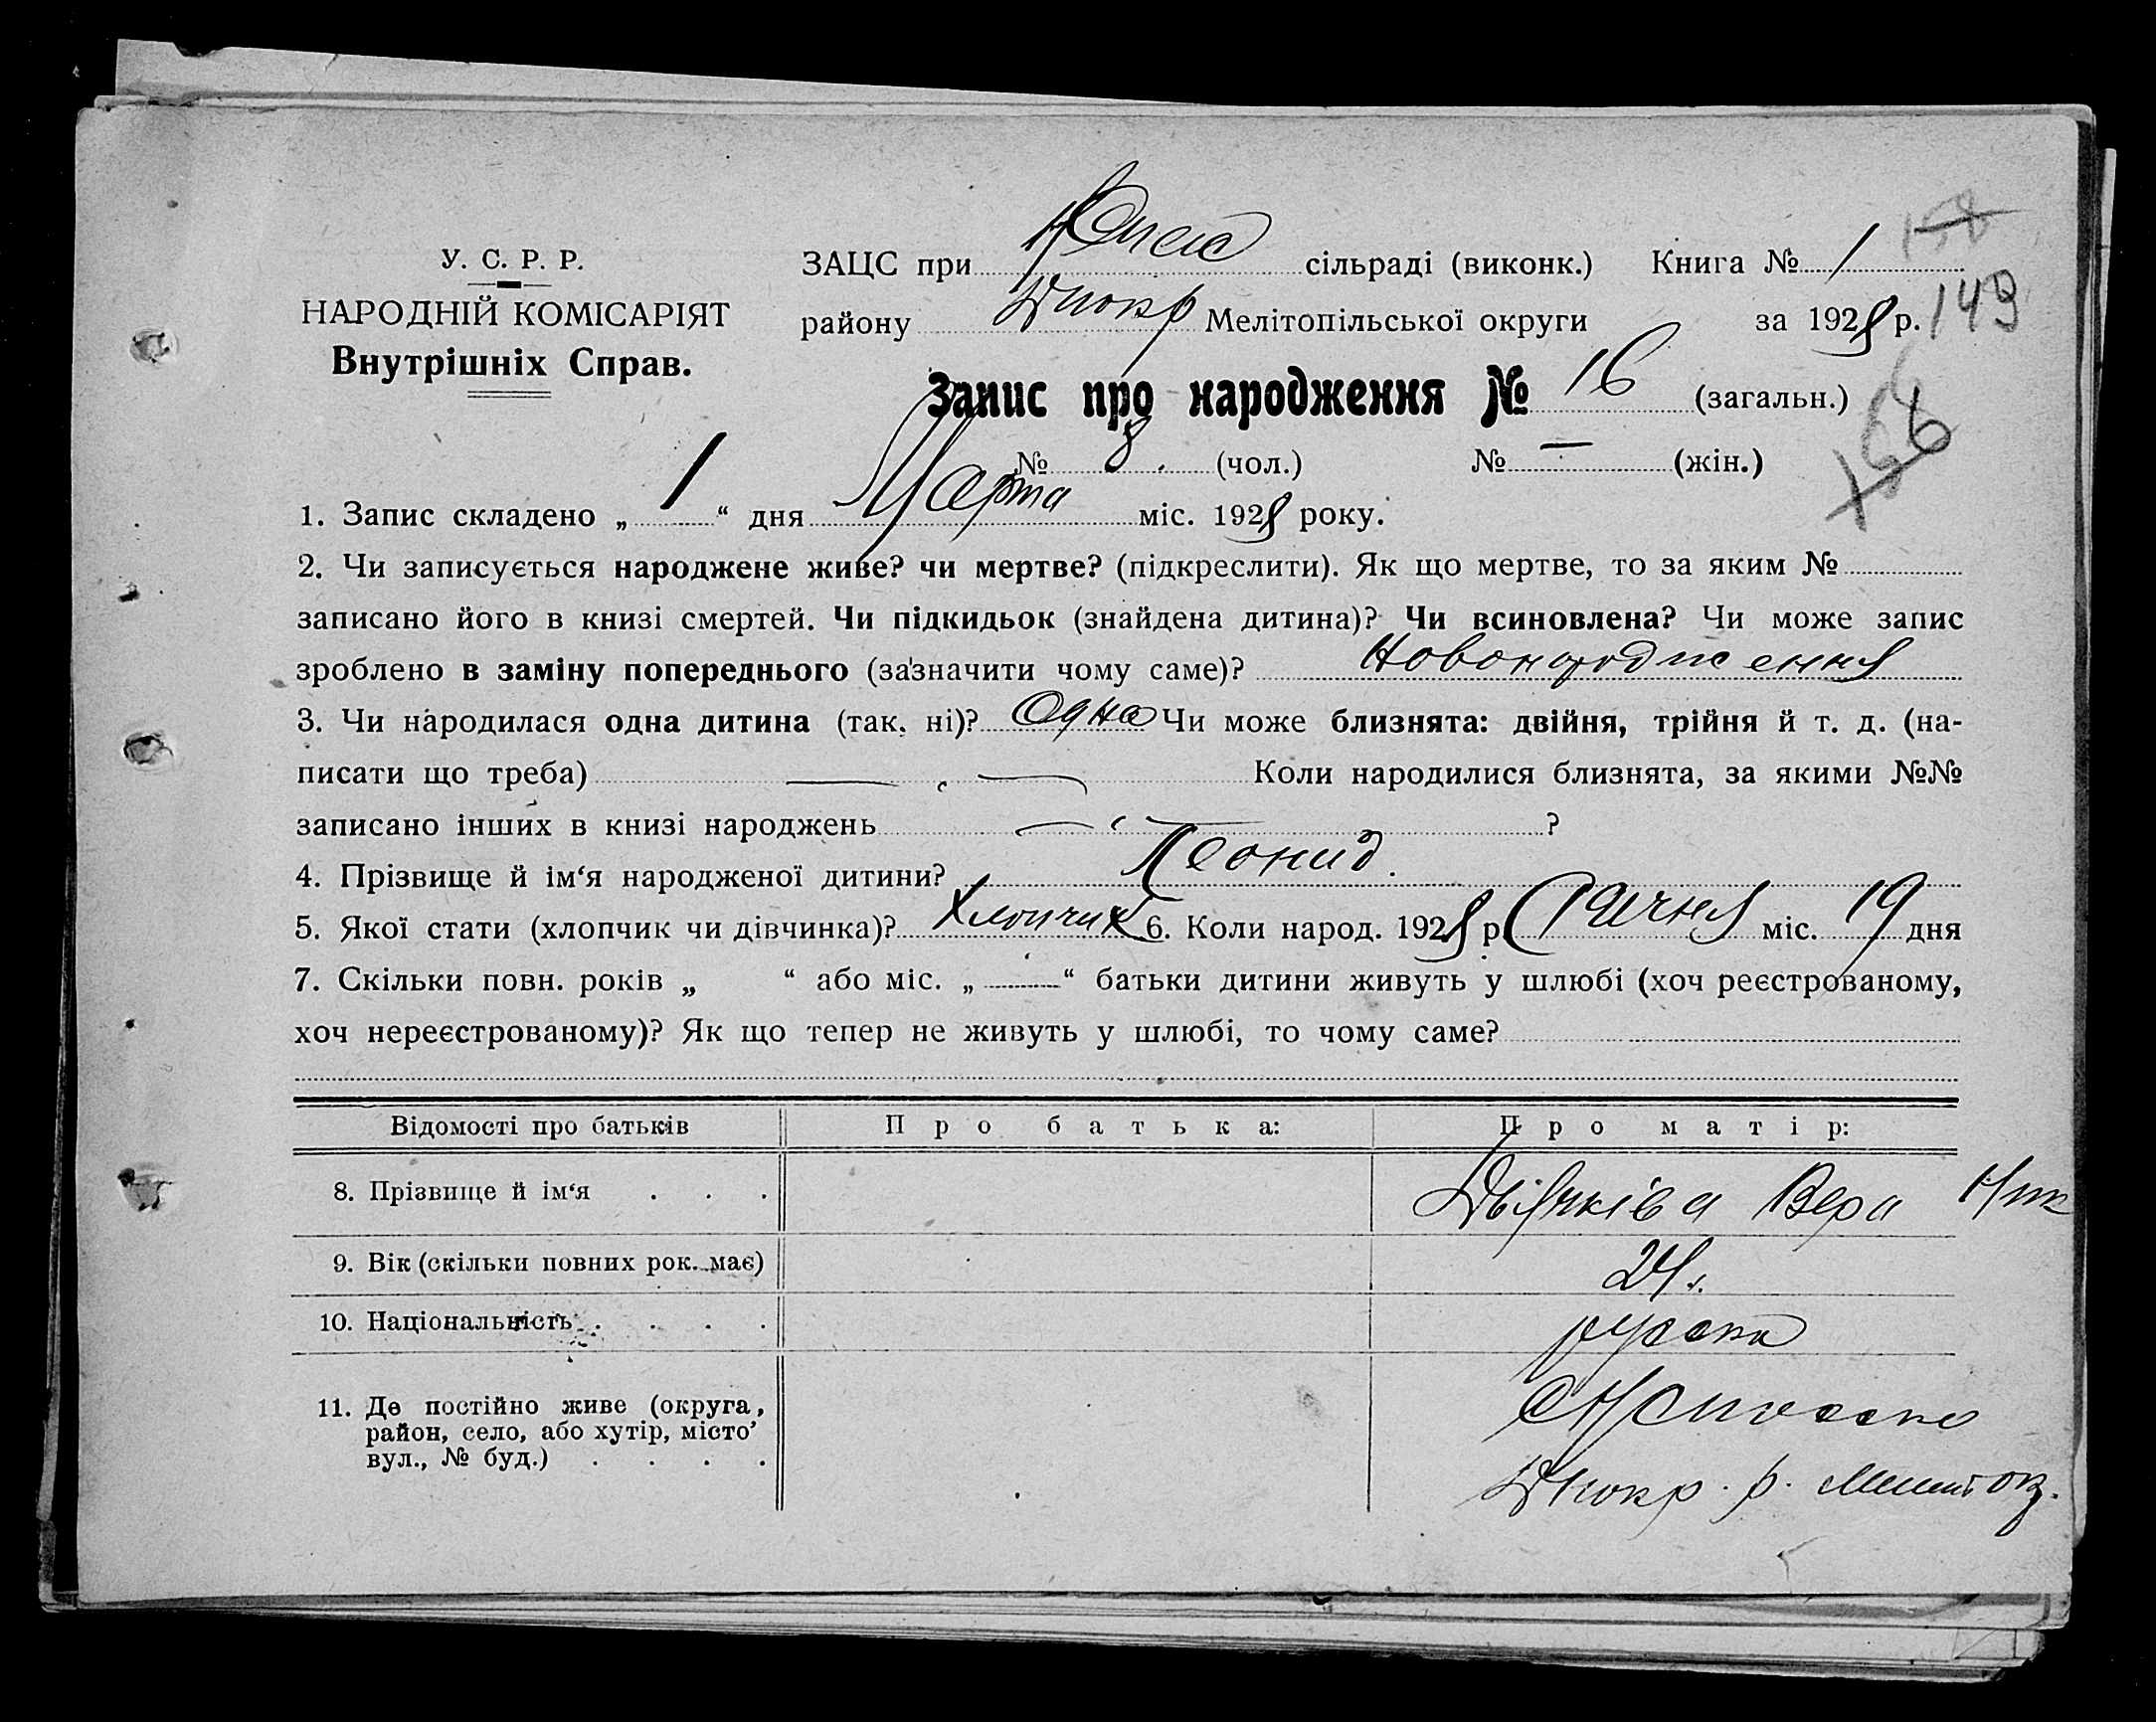 У. С. Р. Р.
НАРОДНІЙ КОМІСАРІЯТ
Внутрішніх Справ.
ЗАЦС при сільраді (виконк.) Книга № 1
158
району Мелітопільської округи за 1928 р. 149
Запис про народження № 16 (загальн.)
166
№ 8. (чол.) № — (жін.)
1. Запис складено „ 1 “ дня Марта міс. 1928 року.
2. Чи записується народжене живе? чи мертве? (підкреслити). Як що мертве, то за яким №
записано його в книзі смертей. Чи підкидьок (знайдена дитина)? Чи всиновлена? Чи може запис
зроблено в заміну попереднього (зазначити чому саме)? Новонародження
3. Чи народилася одна дитина (так, ні)? Одна Чи може близнята: двійня, трійня й т. д. (на-
писати що треба) Коли народилися близнята, за якими №№
записано інших в книзі народжень ?
4. Прізвище й ім‘я народженої дитини? Леонид.
5. Якої стати (хлопчик чи дівчинка)? Хлопчик 6. Коли народ. 1928 р. Січня міс. 19 дня
7. Скільки повн. років „ “ або міс. „ “ батьки дитини живуть у шлюбі (хоч реєстрованому,
хоч нереєстрованому)? Як що тепер не живуть у шлюбі, то чому саме?
Відомості про батьків Про батька: Про матір:
8. Прізвище й ім‘я . . . Вера
9. Вік (скільки повних рок. має) 24.
10. Національність . . . . русска
11. Де постійно живе (округа,
район, село, або хутір, місто
вул., № буд.) . . . .
р.